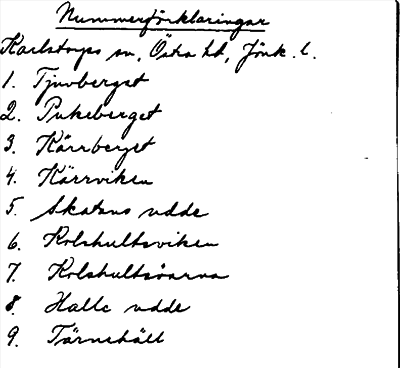 Nummerförklaringar
Karlstorps sn, Östra hd, Jönk. l.
1. Tjuvberget
2. Pukeberget
3. Kärrberget
4. Kärrviken
5. Skatans udde
6. Kolshultsviken
7. Kolshultsöarna
8. Halle udde
9. Tärnehäll